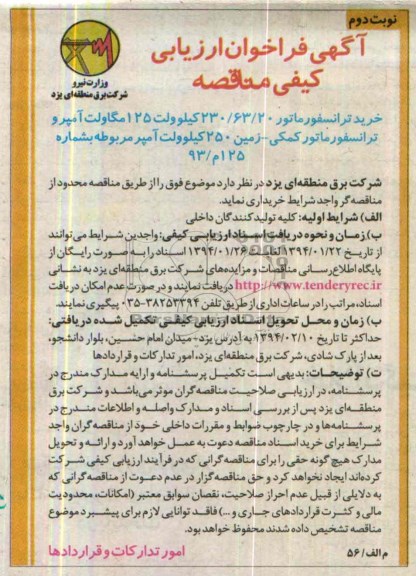 نوبت دوم
آگهی فراخوان ارزیابی
کیفی مناقصه
وزارت نیرو
شرکت برق منطقه‌ای یزد
خرید ترانسفورماتور ۲۳۰/۶۳/۲۰ کیلوولت ۱۲۵ مگاولت آمپر و
ترانسفورماتور کمکی - زمین ۲۵۰ کیلوولت آمپر مربوطه بشماره
۱۲۵م/۹۳
شرکت برق منطقه‌ای یزد در نظر دارد موضوع فوق را از طریق مناقصه محدود از
مناقصه‌گر واجد شرایط خریداری نماید.
الف) شرایط اولیه: کلیه تولیدکنندگان داخلی
ب) زمان و نحوه دریافت اسناد ارزیابی کیفی: واجدین شرایط می‌توانند
از تاریخ ۱۳۹۴/۰۱/۲۲ لغایت ۱۳۹۴/۰۱/۲۶ اسناد را به صورت رایگان از
پایگاه اطلاع‌رسانی مناقصات و مزایده‌های شرکت برق منطقه‌ای یزد به نشانی
http://www.tenderyrec.ir دریافت نمایند و در صورت عدم امکان دریافت
اسناد، مراتب را در ساعات اداری از طریق تلفن ۳۸۲۵۳۳۹۴-۰۳۵ پیگیری نمایند.
پ) زمان و محل تحویل اسناد ارزیابی کیفی تکمیل شده دریافتی:
حداکثر تا تاریخ ۱۳۹۴/۰۲/۱۰ به آدرس یزد- میدان امام حسین، بلوار دانشجو،
بعد از پارک شادی، شرکت برق منطقه‌ای یزد، امور تدارکات و قراردادها
ت) توضیحات: بدیهی است تکمیل پرسشنامه و ارایه مدارک مندرج در
پرسشنامه، در ارزیابی صلاحیت مناقصه‌گران موثر می‌باشد و شرکت برق
منطقه‌ای یزد پس از بررسی اسناد و مدارک واصله و اطلاعات مندرج در
پرسشنامه‌ها و در چارچوب ضوابط و مقررات داخلی خود از مناقصه‌گران واجد
شرایط برای خرید اسناد مناقصه دعوت به عمل خواهد آورد و ارائه و تحویل
مدارک هیچ گونه حقی را برای مناقصه‌گرانی که در فرآیند ارزیابی کیفی شرکت
کرده‌اند ایجاد نخواهد کرد و حق مناقصه‌گزار در عدم دعوت از مناقصه‌گرانی که
به دلایلی از قبیل عدم احراز صلاحیت، نقصان سوابق معتبر (امکانات، محدودیت
مالی و کثرت قراردادهای جاری و ...) فاقد توانایی لازم برای پیشبرد موضوع
مناقصه تشخیص داده شدند محفوظ خواهد بود.
م الف/ ۵۶
امور تدارکات و قراردادها